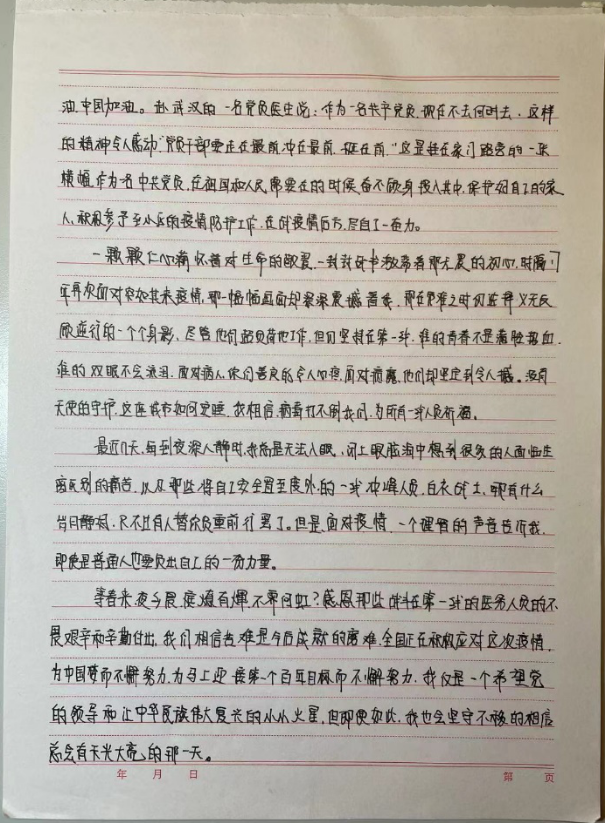 油,中国加油。赴武汉的一名党员医生说:作为一名共产党员,现在不去何时去,这样
的精神令人感动"党员干部要走在最前冲在最前,挺在前."这是挂在家门路旁的一张
横幅,作为名中共党员,在祖国和人民需要在的时候奋不顾身投入其中,保护好自己的家
人,积极参予至小区的疫情防护工作,在战疫情后方,尽自己一奋力。
一颗颗仁心满怀着对生命的敬畏,一封封请书激荡着那无畏的初心,时隔17
年再次面对突如其来疫情,那一幅幅画面却深深震撼着我,那在危难之时仅选择义无反
顾逆行的一个个身影,尽管他们超负荷地工作,但们坚持在第一线,谁的青春不是满腔热血,
谁的双眼不会流泪,面对病人,你们善良的令人心疼,面对病魔,他们却坚定到令人撼。没有
天使的守护,这座城市如何安睡,我相信,病毒打不倒我们,为所有一线人员祈福。
最近几天,每到夜深人静时,我总是无法入眠,闭上眼脑海中想到很多的人面临生
离死别的痛苦,以及那些将自己安全置至度外的一线冲锋人员,白衣战士,哪有什么
岁月静好,只不过有人替你负重前行罢了。但是,面对疫情,一个理智的声音告诉我,
即使是普通人也要负出自己的一份力量。
等春来,夜兮晨,
畏艰辛和辛勤付出,我们相信苦难是今后成就的磨难,全国正在积极应对这次疫情,
为中国梦而不懈努力,为马上迎接第一个百年目标而不懈努力,我仅是一个希望党
的领导和让中华民族伟大复兴的小小火星,但即便如此,我也会坚守不移的相信
总会有天光大亮的那一天。
年 月 日 第 页